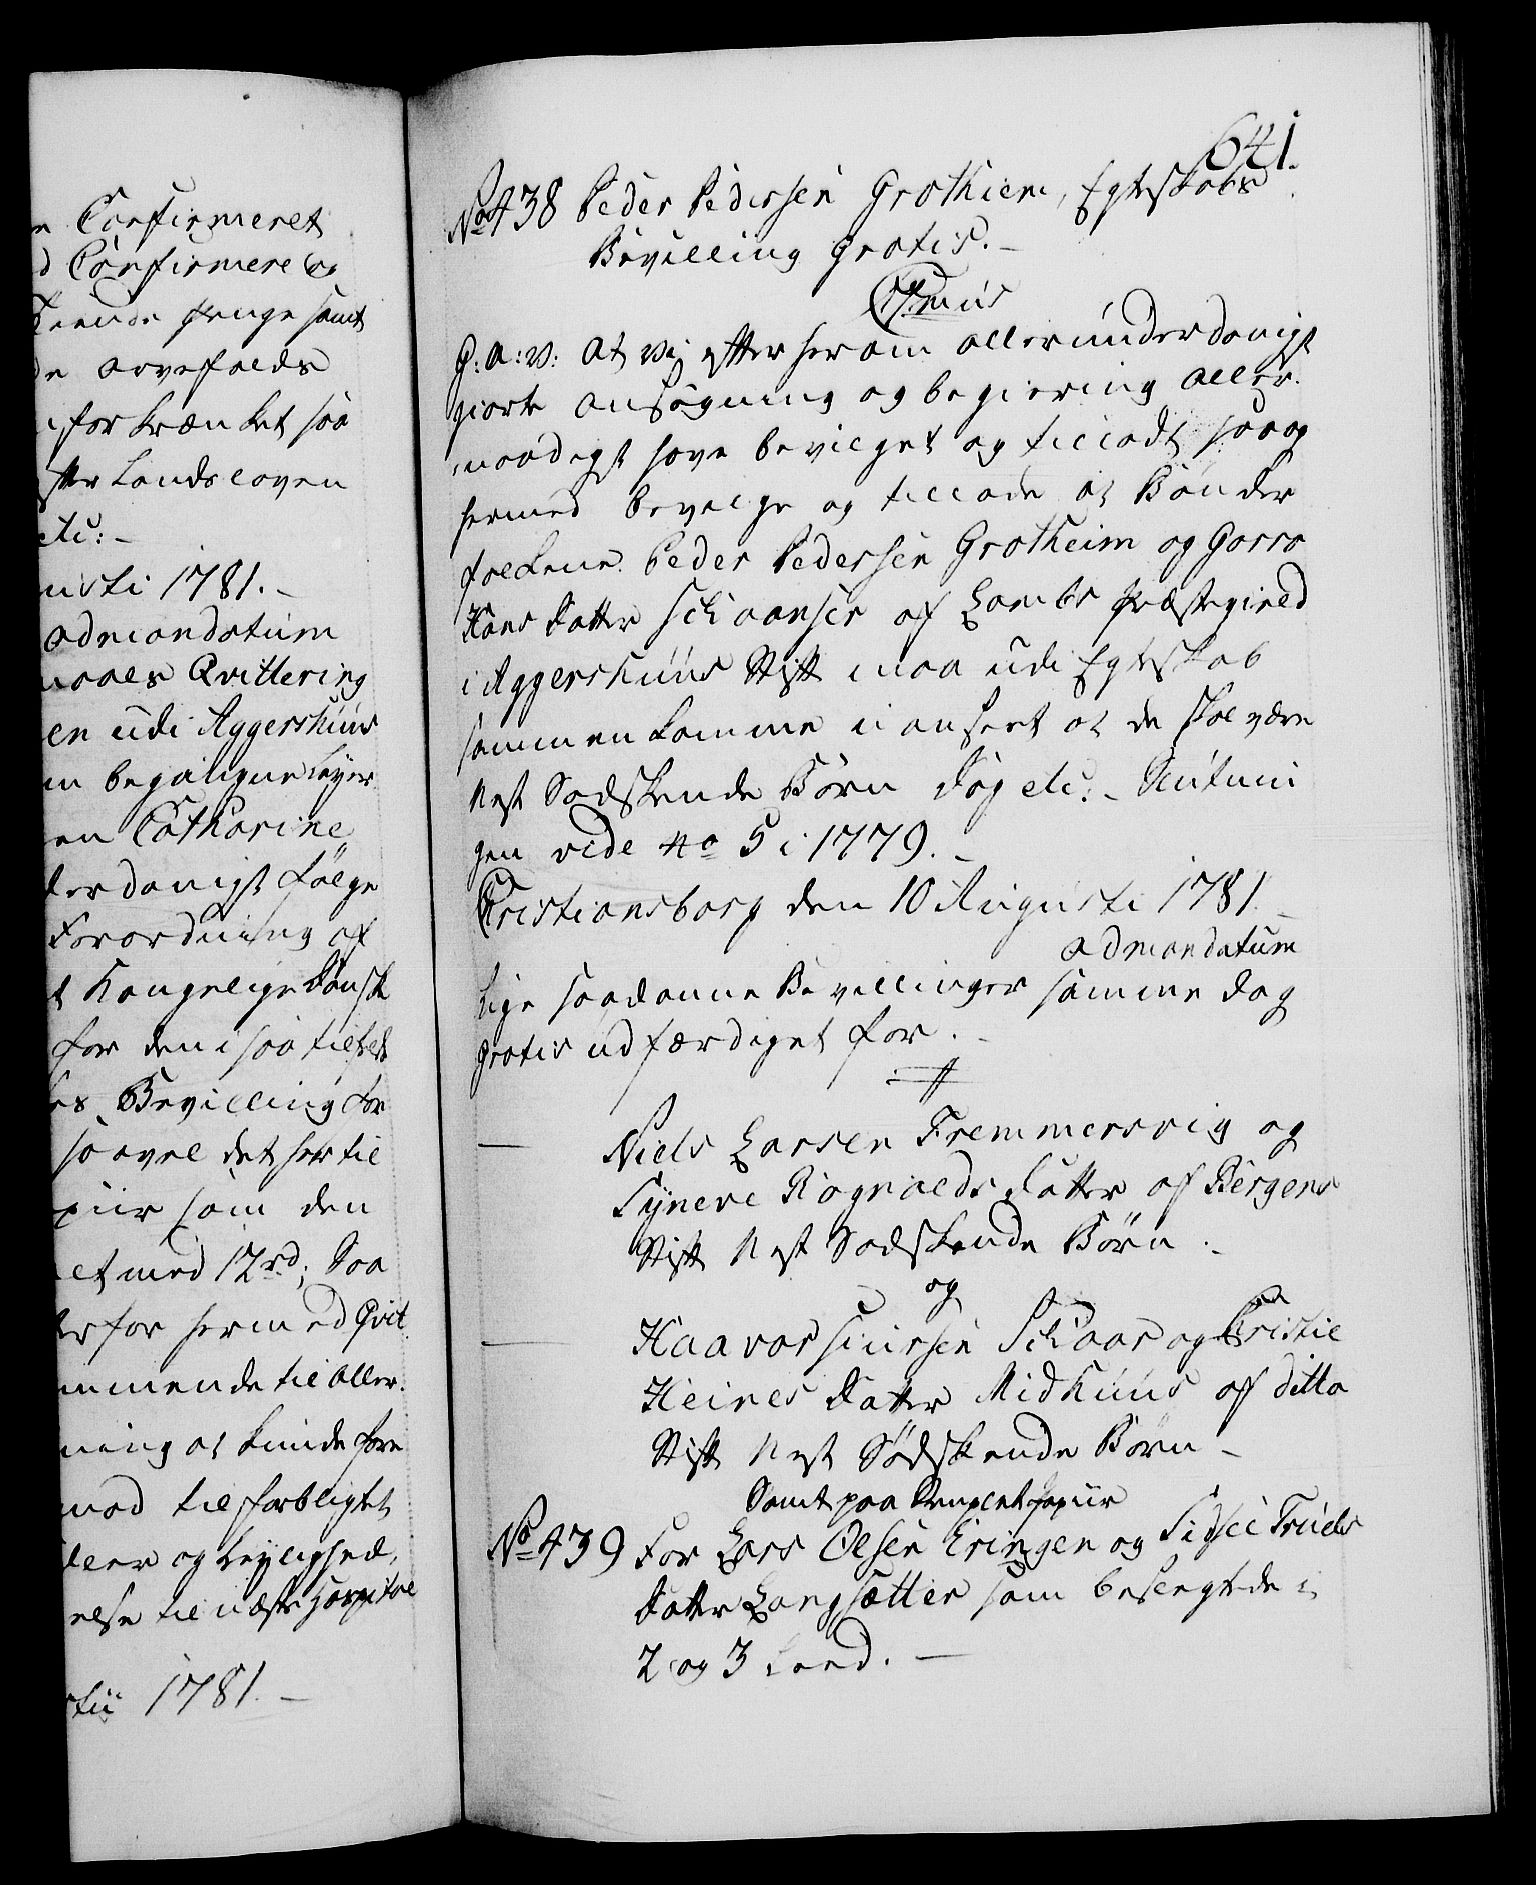 n Confirmeret
d Confirmere og
keende penge samt
de arvefalds
forkrænket saa
fter Landsloven
etc: -
usti 1781. -
admandatum
maals Qvittering
en udi Aggershuus
m begangne Leyer
en Catharine
derdanigst følge
Forordning af
t Kongelige Dansk
for den i saa tilfelde
es Bevilling for
saavel det her til
piir som den
et med 12 rd; Saa
erfor hermed Qvit
mmende til Aller.
ning at kunde fore
mod til forbligtet
deer og Leylighed,
else til næste Hospital
stii 1781. -
641.
No 438 Peder Pedersen Grothiem, Egteskabs
Bevilling gratis. -
C. 7.mus
G: a: v: at vi efter herom allerunderdanigst
giorte ansøgning og begiering aller-
naadigst have bevilget og tilladt saa og
hermed bevilge og tillade at Bønder
folkene Peder Pedersen Grotheim og Gorro
Hans datter Schaanser af Lombs Præstegield
i Aggershuus Stift maa udi Egteskab
sammenkomme uanseet at de skal være
Nest Sødskende Børn dog etc: - Slutnin
gen vide No 5 i 1779. -
Cristiansborg den 10 Augusti 1781. -
admandatum
Lige saadanne Bevillinger samme dag
gratis udfærdiget for. -
Niels Larsen Fremmersvig og
Syneve Rognalds datter af Bergens
Stift Nest Sødskende Børn. -
og
Haavor Siursen Schaar og Cristie
Heines datter Midhuus af ditto
Stift Nest Sødskende Børn -
Samt paa Stemplet Papiir
No 439 For Lars Olsen Eringen og Sidsel Truels
datter Langsætter som beslegtede i
2 og 3 Leed. -